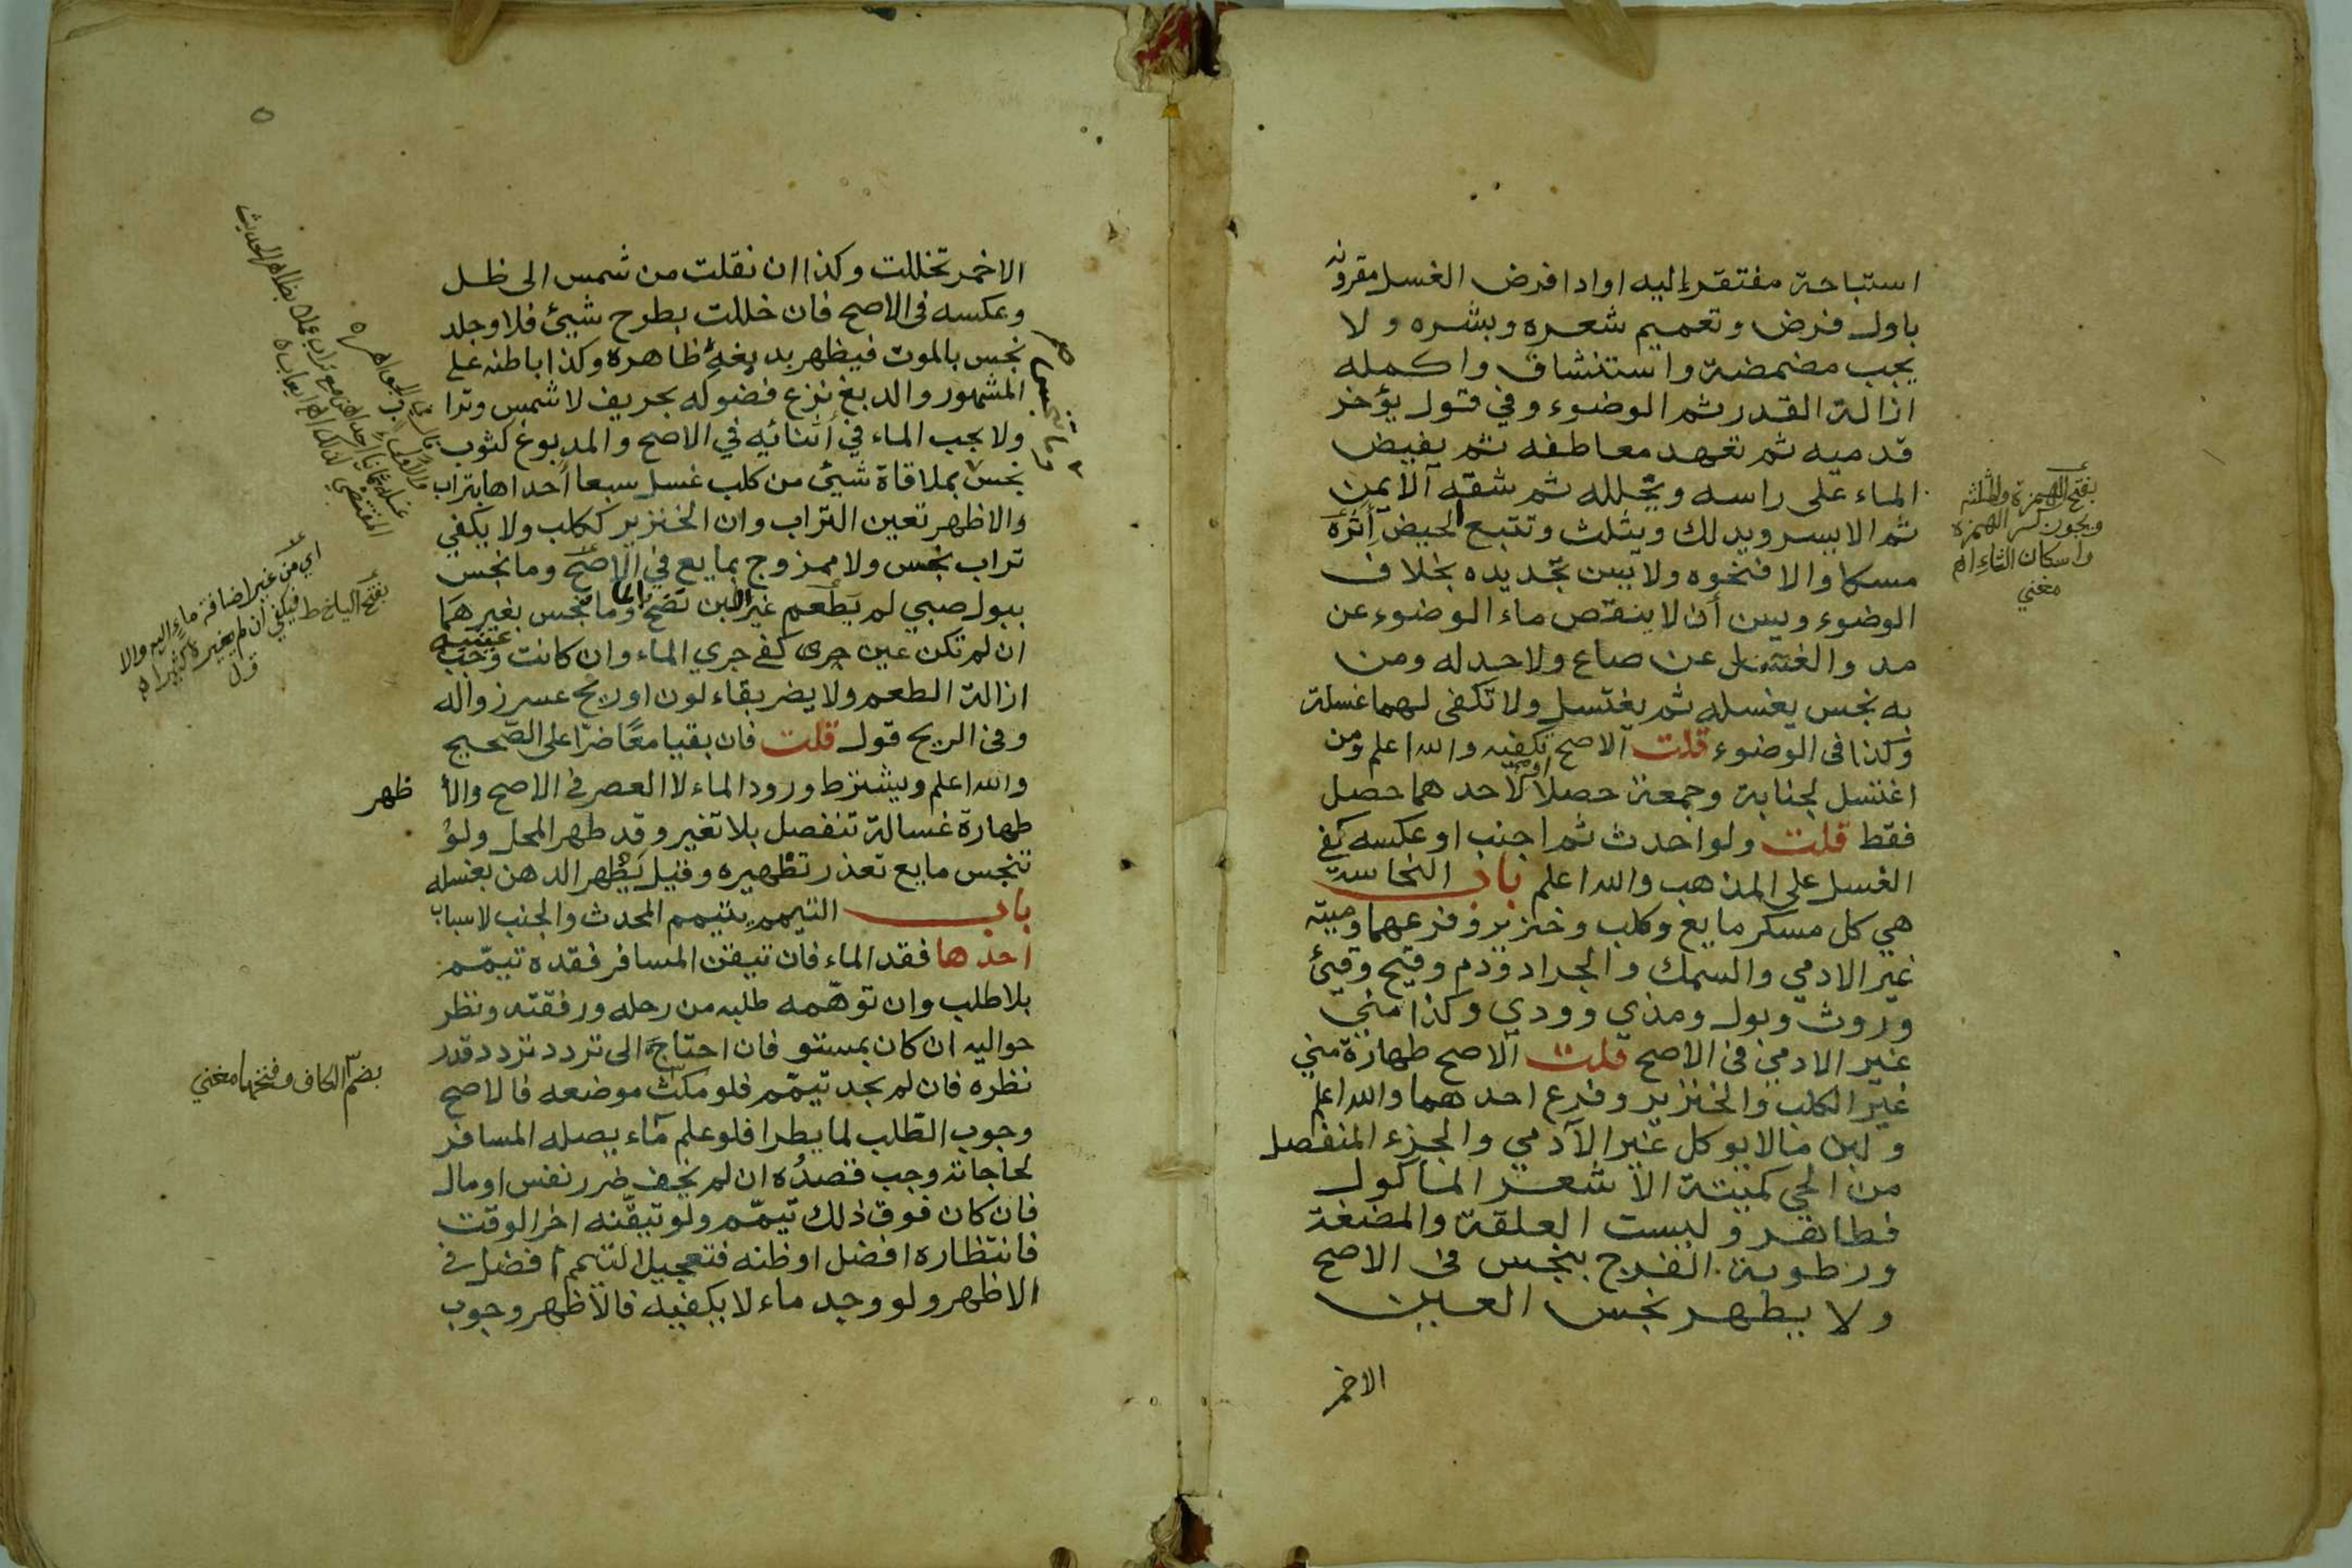 استباحة مفتقر اليه او ادا فرض الغسل مقرونه
باول فرض وتعميم شعره وبشره ولا
يجب مضمضة واستنشاق واكمله
ازالة القدر ثم الوضوء وفي قول يؤخر
قدميه ثم تعهد معاطفه ثم يفيض
الماء على راسه ويخلله ثم شقه الايمن
ثم الايسر ويدلك ويثلث وتتبع الحيض أثره
مسكا والا فنخوه ولا يسن تجديده بخلاف
الوضوء ويسن أن لا ينقص ماء الوضوء عن
مد والغسل عن صاع ولا حد له ومن
به نجس يغسله ثم يغتسل ولا تكفى لهما غسلة
وكذا فى الوضوء قلت الاصح تكفيه والله اعلم ومن
اغتسل لجنابة وجمعة حصلا او لاحدهما حصل
فقط قلت ولو احدث ثم اجنب او عكسه كفى
الغسل على المذهب والله اعلم باب النجاسة
هي كل مسكر مايع وكلب وخنزير وفرعهما وميتة
غير الادمي والسمك والجراد ودم وقيح وقيئ
وروث وبول ومذي وودي وكذا مني
غير الادمي فى الاصح قلت الاصح طهارة مني
غير الكلب والخنزير وفرع احدهما والله اعلم
ولبن مالا يوكل غير الآدمي والجزء المنفصل
من الحي كميتة الا شعر الماكول
فطاهر وليست العلقة والمضغة
ورطوبة الفرج بنجس فى الاصح
ولا يطهر نجس العين
الاخمر
بفتح الهمزة والمثلثه
ويجوز كسر الهمزه
واسكان الثاء اه
مغني
الاخمر تخللت وكذا ان نقلت من شمس الى ظل
وعكسه فى الاصح فان خللت بطرح شيئ فلا وجلد
نجس بالموت فيطهر بدبغه ظاهره وكذا باطنه على
المشهور والدبغ نزع فضوله بحريف لا شمس وترا
ولا يجب الماء في أثنائه في الاصح والمدبوغ كثوب
نجس بملاقاة شيئ من كلب غسل سبعا أحداها بتراب
والاظهر تعين التراب وان الخنزير ككلب ولا يكفي
تراب نجس ولا ممزوج بمايع في الاصح وما نجس
ببول صبي لم يطعم غير لبن نضح وما نجس بغيرهما
ان لم تكن عين جرى كفى جري الماء وان كانت وجب
ازالة الطعم ولا يضر بقاء لون او ريح عسر زواله
وفى الريح قول قلت فان بقيا معًا ضرّا على الصّحيح
والله اعلم ويشترط ورود الماء لا العصر فى الاصح والأ ظهر
طهارة غسالة تنفصل بلا تغير وقد طهر المحل ولو
تنجس مايع تعذر تطهيره وقيل يطهر الدهن بغسله
باب التيمم يتيمم المحدث والجنب لاسباب
احدها فقد الماء فان تيقن المسافر فقده تيمّم
بلا طلب وان توهّمه طلبه من رحله ورفقته ونظر
حواليه ان كان بمستو فان احتاج الى تردد تردد قدر
نظره فان لم يجد تيمّم فلو مكث موضعه فالاصح
وجوب الطّلب لما يطرا فلو علم ماء يصله المسافر
لحاجاته وجب قصدُه ان لم يخف ضرر نفس او مال
فان كان فوق ذلك تيمّم ولو تيقّنه اخر الوقت
فانتظاره افضل او ظنه فتعجيل التيمم افضل فى
الاظهر ولو وجد ماء لا يكفيه فالأظهر وجوب
وما نجس
اي من غير اضافة ماء اليه والا
بضم الكاف وفتحها مغني